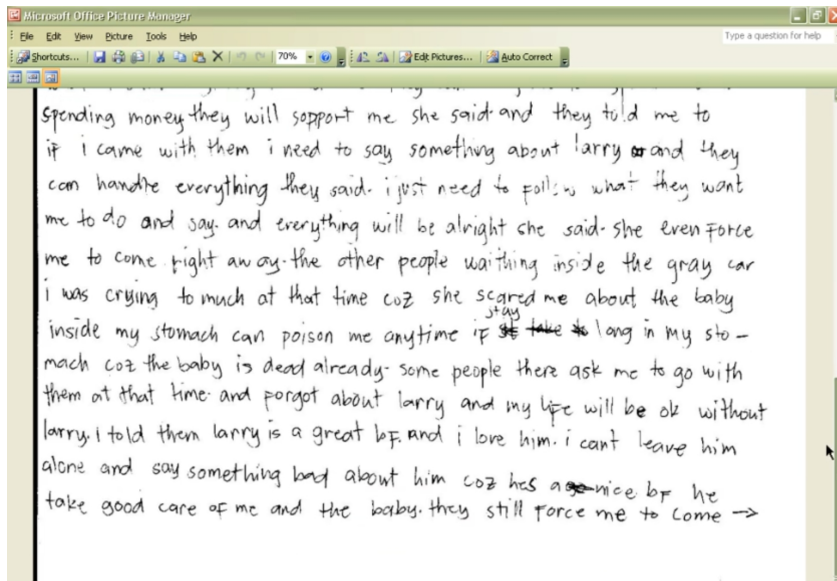 Microsoft Office Picture Manager
File Edit View Picture Tools Help
Type a question for help
Shortcuts... 70% Edit Pictures... Auto Correct
spending money they will sopport me she said. and they told me to
if i came with them i need to say something about larry and they
can handle everything they said. i just need to follow what they want
me to do and say. and everything will be alright she said. she even Force
me to come right away. the other people waithing inside the gray car
i was crying to much at that time coz she scared me about the baby
inside my stomach can poison me anytime if stay long in my sto-
mach coz the baby is dead already. some people there ask me to go with
them at that time. and forgot about larry and my life will be ok without
larry. i told them larry is a great bf. and i love him. i cant leave him
alone and say something bad about him coz hes a nice bf he
take good care of me and the baby. they still Force me to come →